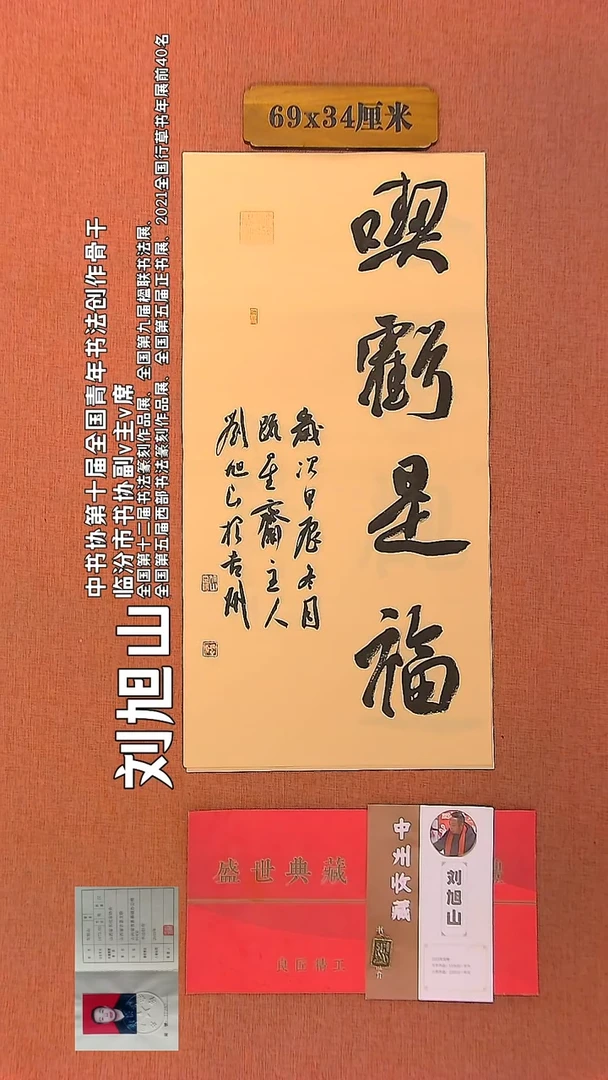 69x34厘米
喫虧是福
歲次甲辰冬月
瓯星齋主人
劉旭山於古州
刘旭山
中书协第十届全国青年书法创作骨干
临汾市书协副v主v席
全国第十二届书法篆刻作品展、全国第九届楹联书法展、
全国第五届西部书法篆刻作品展、全国第五届正书展、2021全国行草书年展前40名
盛世典藏
中州收藏
刘旭山